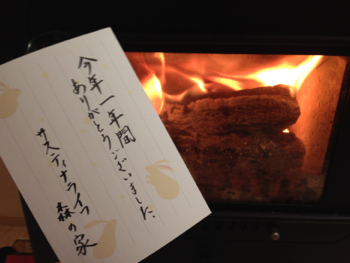 今年一年間
ありがとうございました。
サスティナライフ
森の家